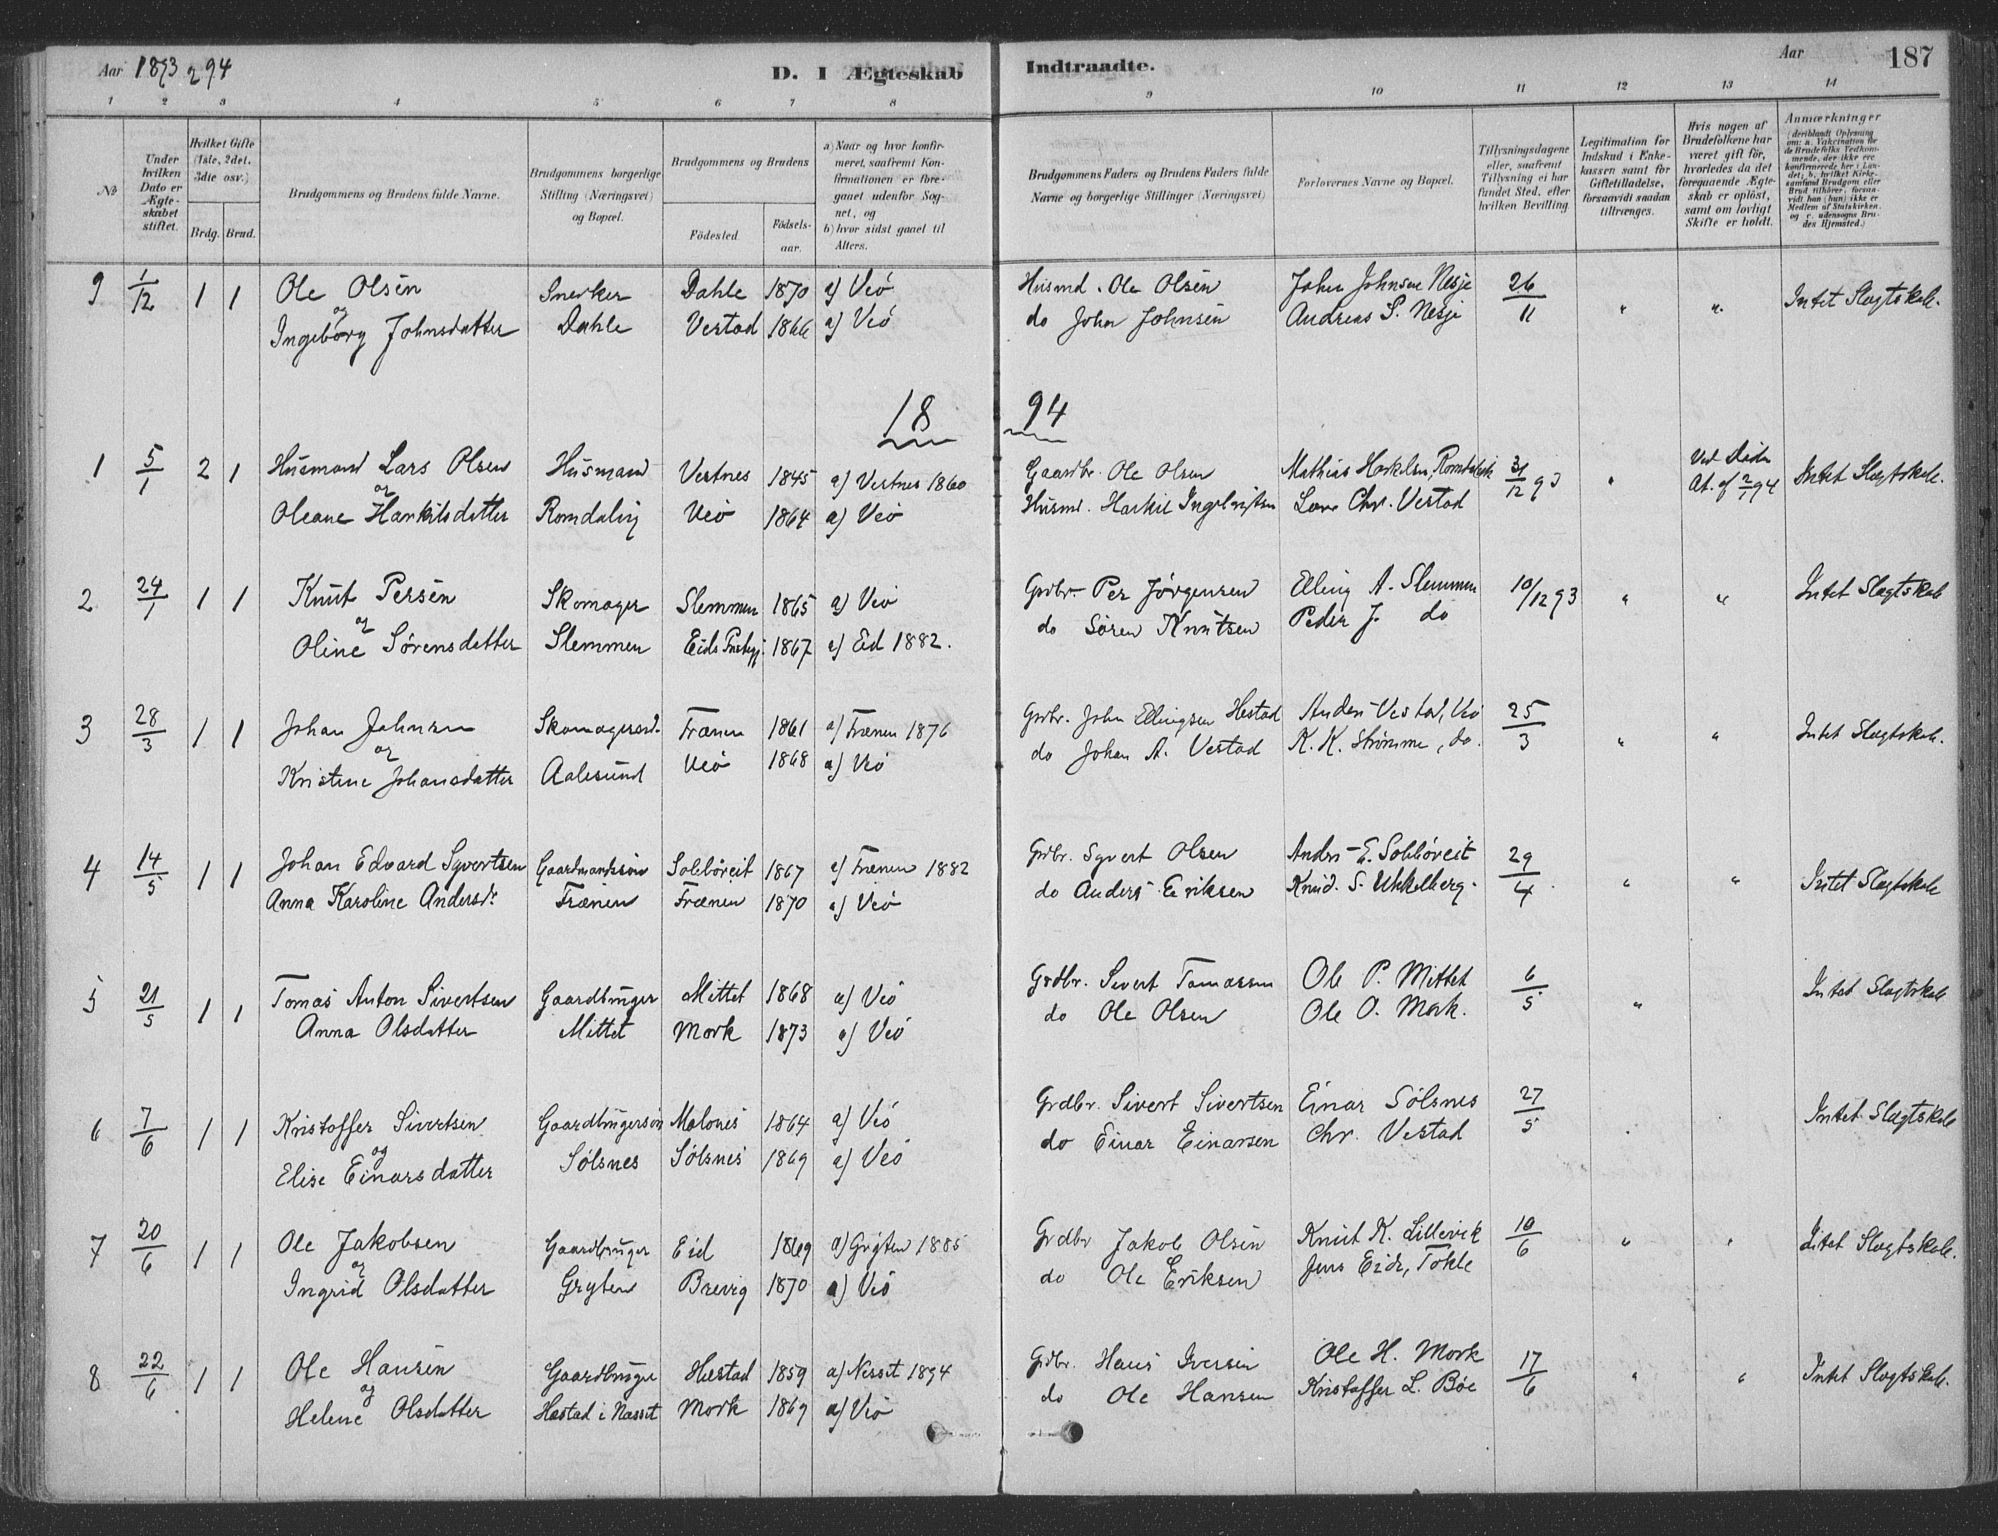 Aar 1893 & 94 D. I Ægteskab Indtraadte. Aar 187
1 2 3 4 5 6 7 8 9 10 11 12 13 14
No
Under hvilken Dato er Ægteskabet stiftet.
Hvilket Gifte (1ste, 2det, 3die osv.)
Brdg. Brud.
Brudgommens og Brudens fulde Navne.
Brudgommens borgerlige Stilling (Næringsvei) og Bopæl.
Brudgommens og Brudens
Födested. Födselsaar.
a) Naar og hvor konfirmeret, saafremt Konfirmationen er foregaaet udenfor Sognet, og
b) hvor sidst gaaet til Alters.
Brudgommens Faders og Brudens Faders fulde Navne og borgerlige Stillinger (Næringsvei)
Forlovernes Navne og Bopæl.
Tillysningsdagene eller, saafremt Tillysning ei har fundet Sted, efter hvilken Bevilling.
Legitimation for Indskud i Enkekassen samt for Giftetilladelse, forsaavidt saadan tiltrænges.
Hvis nogen af Brudefolkene har været gift før, hvorledes da det foregaaende Ægteskab er opløst, samt om lovligt Skifte er holdt.
Anmærkninger (deriblandt Oplysning om: a. Vakcination for de Brudefolks Vedkommende, der ikke ere konfirmerede her i Landet; b. hvilket Kirkesamfund Brudgom eller Brud tilhører, forsaavidt han (hun) ikke er Medlem af Statskirken, og c. udensogns Brudes Hjemsted.)
9 1/12 1 1 Ole Olsen Snerker Dahle 1870 a) Veö Husmd. Ole Olsen John Johnsen Nesje 26/11 " " Intet Slægtskab.
og
Ingeborg Johnsdatter Dahle Vestad 1866 a) Veö do John Johnsen Andreas S. Nesje
18 94
1 5/1 2 1 Husmand Lars Olsen Husmand Vestnes 1845 a) Vestnes 1860 Gaardbr. Ole Olsen Mathias Harkelsen 31/12 93 " Ved Intet Slægtskab.
og
Oleane Harkilsdatter Romdalslig Veö 1864 a) Veö Husmd. Harkil Chr. Vestad At. af 2/1 94
2 24/1 1 1 Knut Persen Skomager Slemmen 1865 a) Veö Grdbr. Per Jørgensen Elling A. Slemmen 10/12 93 " " Intet Slægtskab
og
Oline Sørensdatter Slemmen Eids 1867 a) Eid 1882. do Søren Knutsen Peder J. do
3 28/3 1 1 Johan Johnsen Frænen 1861 a) Frænen 1876 Grdbr. John Ellingsen Hestad Anders Vestad, Veö 25/3 " " Intet Slægtskab.
og
Kristine Johansdatter Aalesund Veö 1868 a) Veö do Johan A. Vestad K. K. Strømme, do.
4 14/5 1 1 Johan Edvard Syvertsen Gaardmandssøn Solbbøreit 1867 a) Frænen 1882 Grdbr. Syvert Olsen Anders E. Solbbøreit 29/4 " " Intet Slægtskab
Anna Karoline Andersdr. Frænen Frænen 1870 a) Veö do Anders Eriksen Knud. S. Ukkelberg.
5 21/5 1 1 Tomas Anton Sivertsen Gaardbruger Mittet 1868 a) Veö Grdbr. Sivert Tomassen Ole P. Mittet 6/5 " Intet Slægtskab
Anna Olsdatter Mittet Mork 1873 a) Veö do Ole Olsen Ole O. Mork.
6 7/6 1 1 Kristoffer Sivertsen Gaardbrugersøn Malones 1864 a) Veö Grdbr. Sivert Sivertsen Einar Sølsnes 27/5 Intet Slægtskab
og
Elise Einarsdatter Sølsnes Sølsnes 1869 a) Veö do Einar Einarsen Chr. Vestad
7 20/6 1 1 Ole Jakobsen Gaardbruger Eid 1869 a) Gryten 1885 Grdbr Jakob Olsen Knut K. Lillevik 10/6 " " Intet Slægtskab.
og
Ingrid Olsdatter Gryten Brevig 1870 a) Veö do Ole Eriksen Jens Eide, Tokle
8 22/6 1 1 Ole Hansen Gaardbruger Hestad 1859 a) Nesset 1874 Grdbr. Hans Iversen Ole H. Mork 17/6 " " Intet Slægtskab.
og
Helene Olsdatter Hestad i Nesset Mork 1869 a) Veö do Ole Hansen Kristoffer L. Bøe